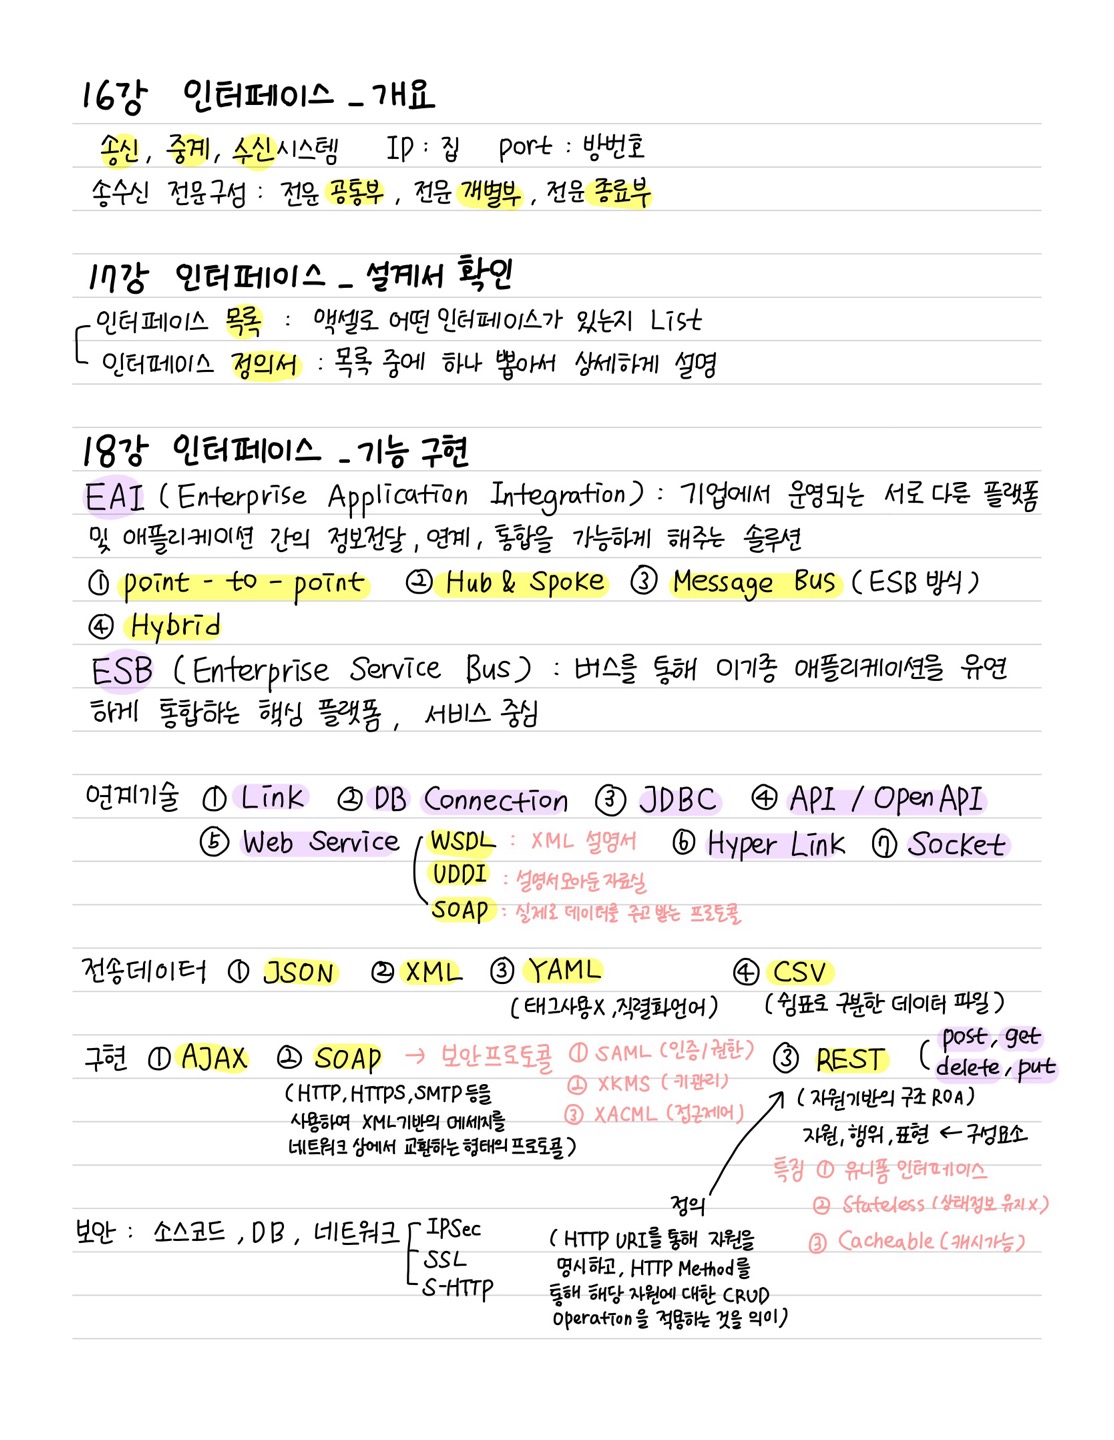 16강 인터페이스 - 개요
송신, 중계, 수신시스템 IP : 집 port : 방번호
송수신 전문구성 : 전문 공통부, 전문 개별부, 전문 종료부
17강 인터페이스 - 설계서 확인
인터페이스 목록 : 액셀로 어떤 인터페이스가 있는지 List
인터페이스 정의서 : 목록 중에 하나 뽑아서 상세하게 설명
18강 인터페이스 - 기능 구현
EAI (Enterprise Application Integration) : 기업에서 운영되는 서로 다른 플랫폼
및 애플리케이션 간의 정보전달, 연계, 통합을 가능하게 해주는 솔루션
① point - to - point ② Hub & Spoke ③ Message Bus (ESB 방식)
④ Hybrid
ESB (Enterprise Service Bus) : 버스를 통해 이기종 애플리케이션을 유연
하게 통합하는 핵심 플랫폼, 서비스 중심
연계기술 ① Link ② DB Connection ③ JDBC ④ API / Open API
⑤ Web Service WSDL : XML 설명서 ⑥ Hyper Link ⑦ Socket
UDDI : 설명서모아둔 자료실
SOAP : 실제로 데이터를 주고 받는 프로토콜
전송데이터 ① JSON ② XML ③ YAML ④ CSV
(태그사용X, 직렬화언어) (쉼표로 구분한 데이터 파일)
구현 ① AJAX ② SOAP → 보안프로토콜 ① SAML (인증/권한) ③ REST (post, get
delete, put
② XKMS (키관리)
③ XACML (접근제어)
(HTTP, HTTPS, SMTP 등을
사용하여 XML기반의 메세지를
네트워크 상에서 교환하는 형태의 프로토콜)
(자원기반의 구조 ROA)
자원, 행위, 표현 ← 구성요소
특징 ① 유니폼 인터페이스
② Stateless (상태정보 유지X)
③ Cacheable (캐시가능)
정의
(HTTP URI를 통해 자원을
명시하고, HTTP Method를
통해 해당 자원에 대한 CRUD
Operation을 적용하는 것을 의미)
보안 : 소스코드, DB, 네트워크 IPSec
SSL
S-HTTP